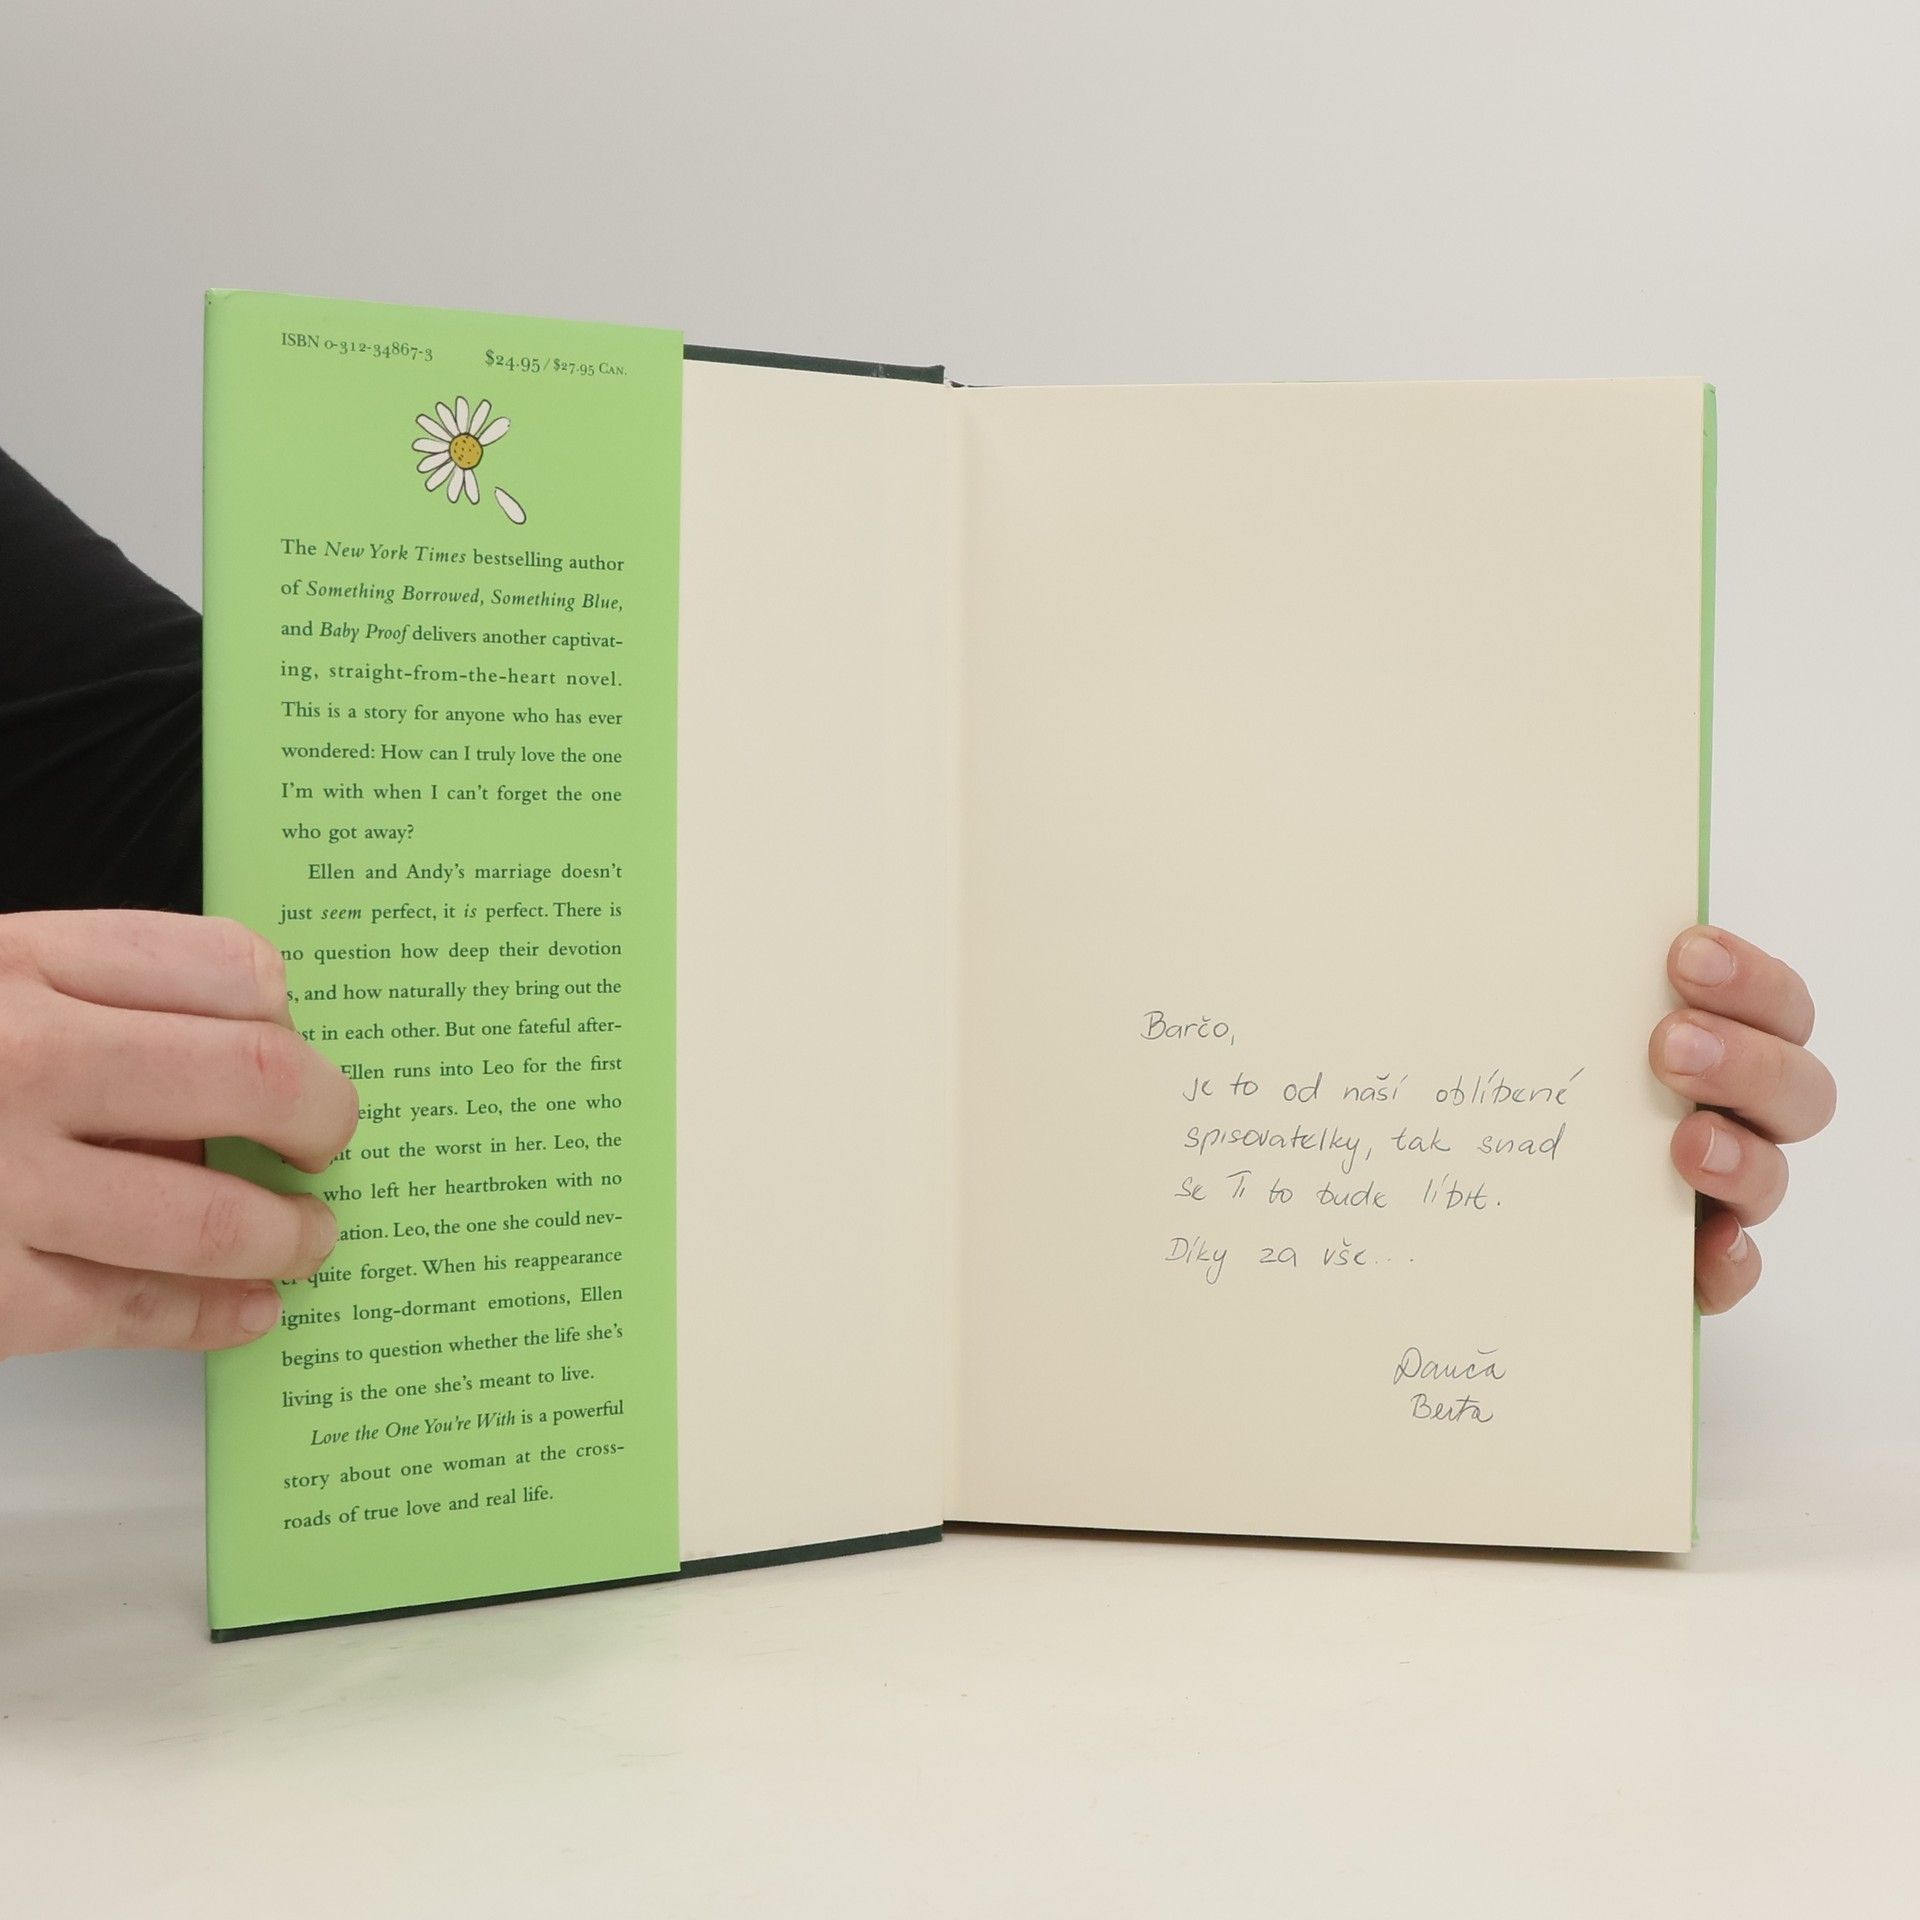 ISBN 0-312-34867-3 $24.95/$27.95 CAN.
The New York Times bestselling author
of Something Borrowed, Something Blue,
and Baby Proof delivers another captivat-
ing, straight-from-the-heart novel.
This is a story for anyone who has ever
wondered: How can I truly love the one
I'm with when I can't forget the one
who got away?
Ellen and Andy's marriage doesn't
just seem perfect, it is perfect. There is
no question how deep their devotion
s, and how naturally they bring out the
st in each other. But one fateful after-
Ellen runs into Leo for the first
eight years. Leo, the one who
out the worst in her. Leo, the
who left her heartbroken with no
ation. Leo, the one she could nev-
er quite forget. When his reappearance
ignites long-dormant emotions, Ellen
begins to question whether the life she's
living is the one she's meant to live.
Love the One You're With is a powerful
story about one woman at the cross-
roads of true love and real life.
Barčo,
je to od naší oblíbené
spisovatelky, tak snad
se Ti to bude líbit.
Díky za vše...
Danča
Berta